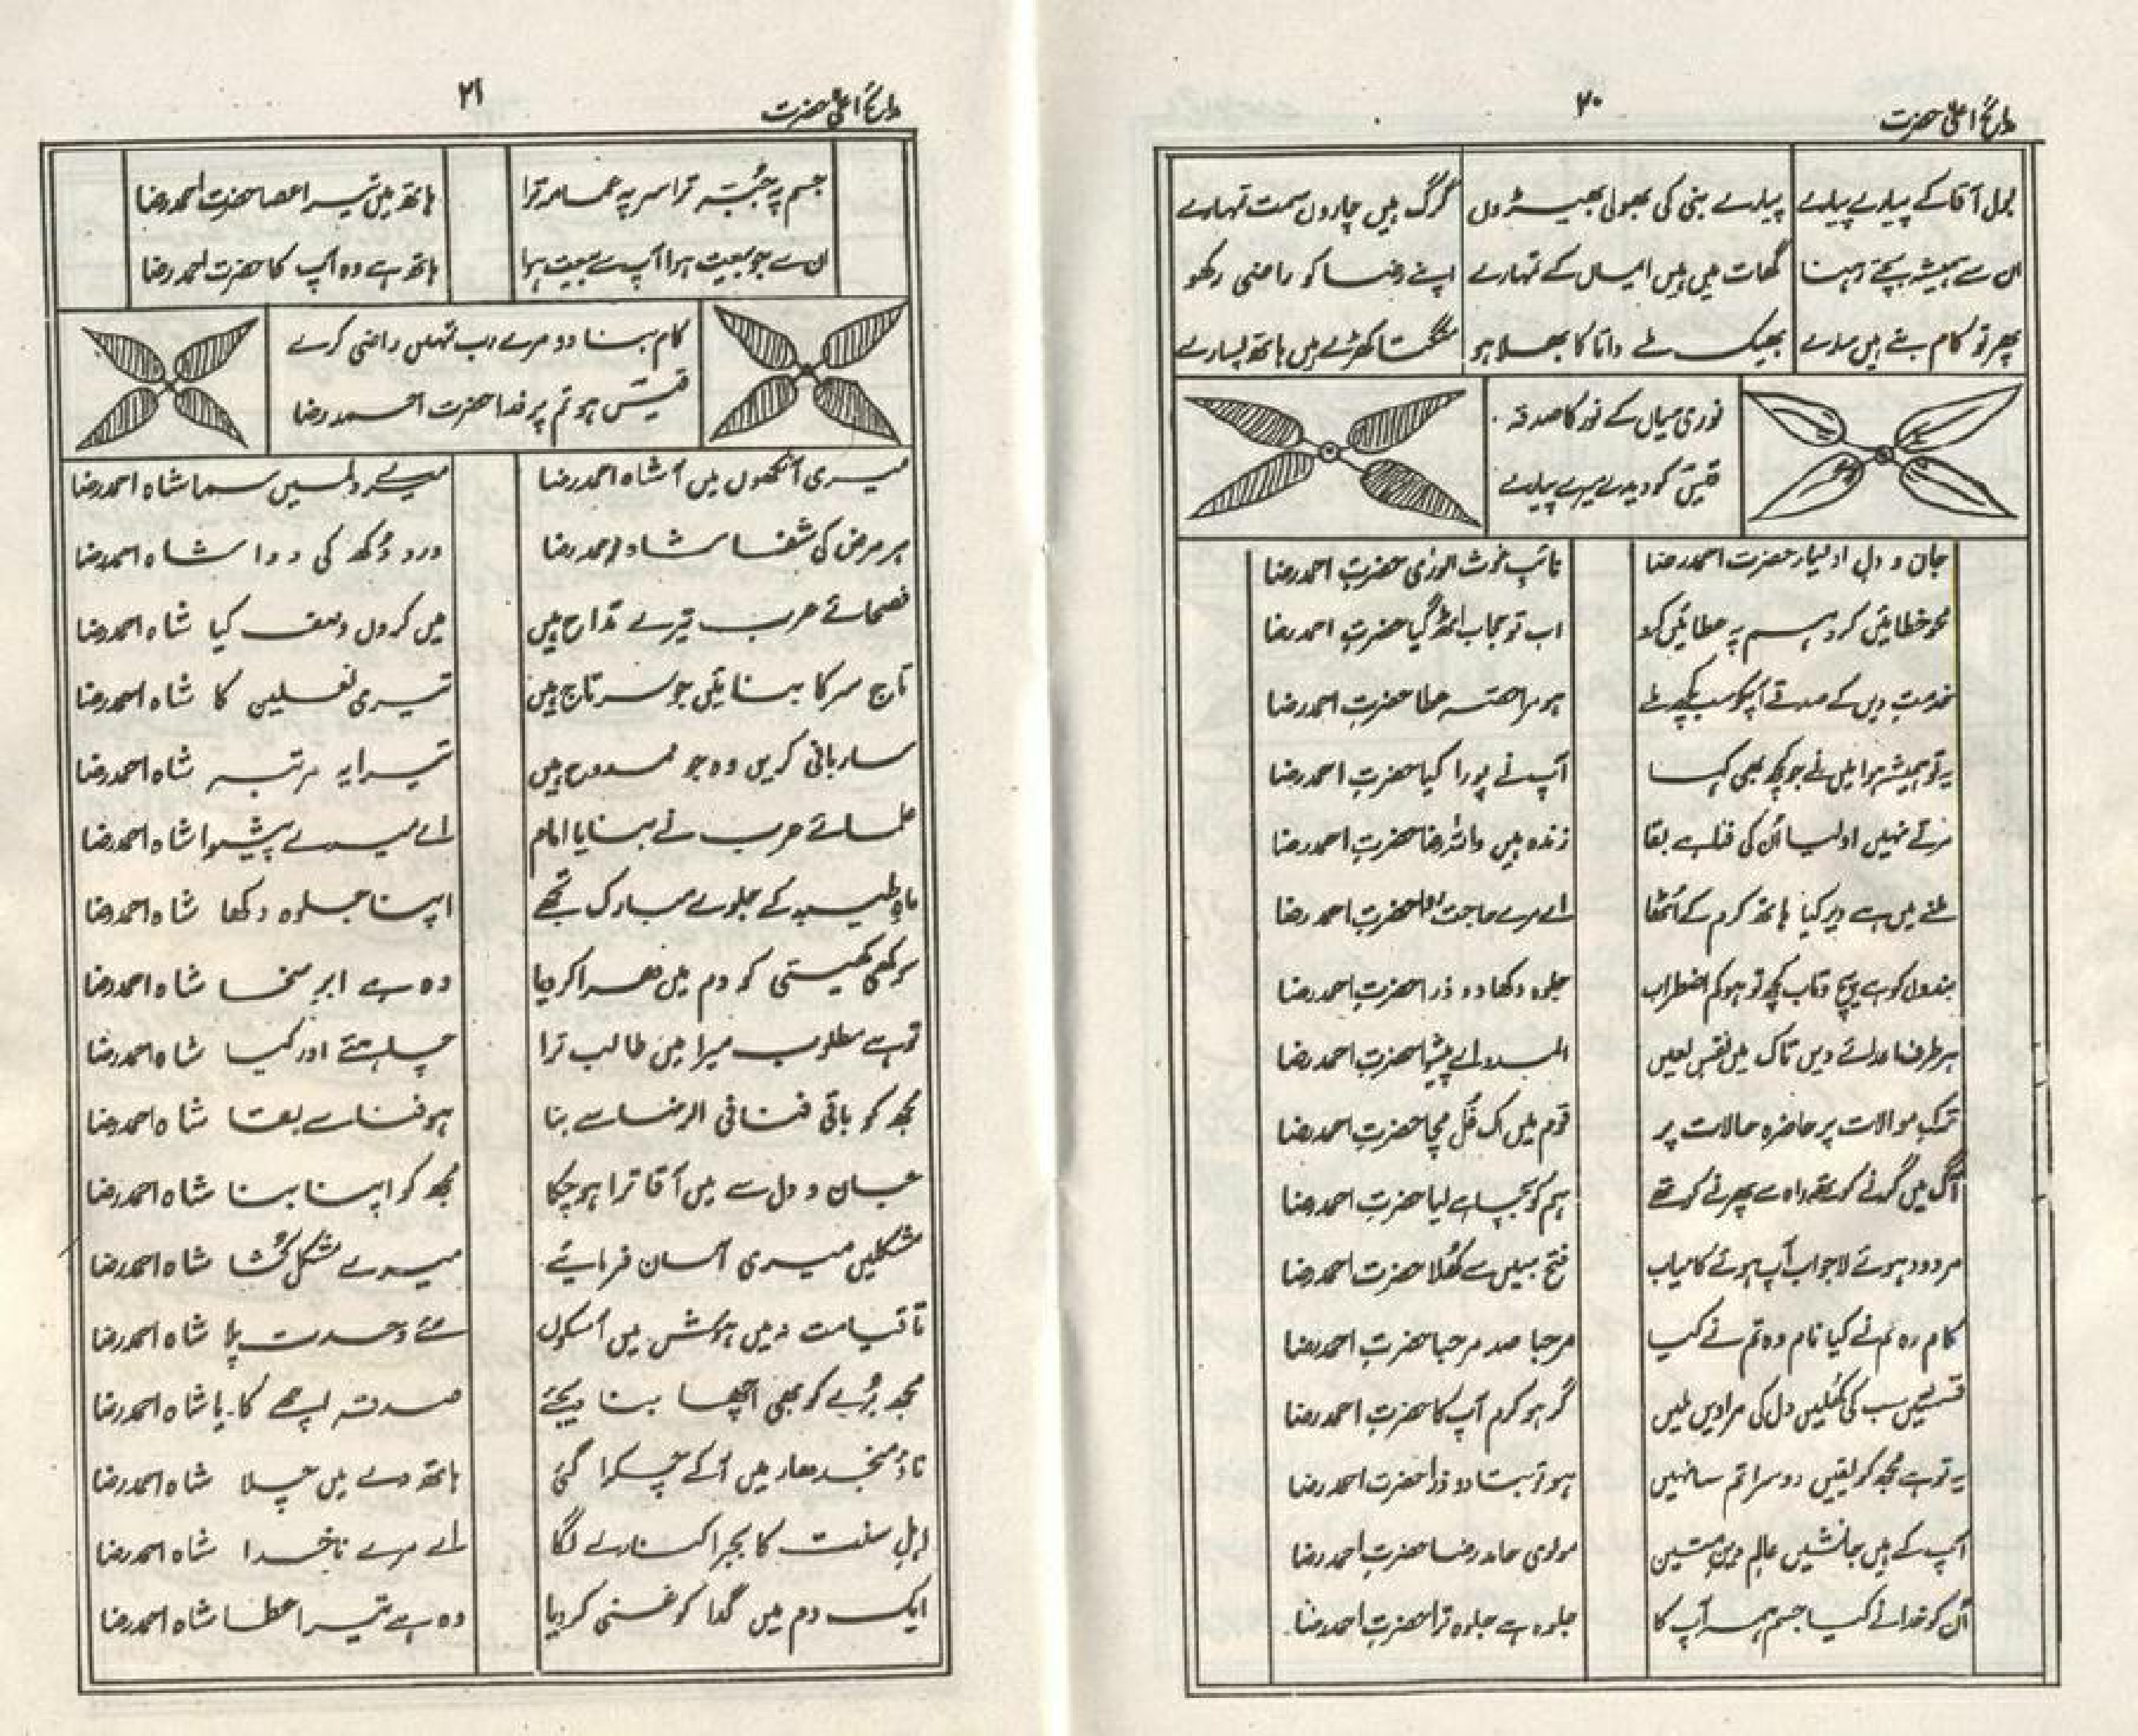 مدائح اعلیٰ حضرت
۲۰
بول آقا کے پیارے پیارے پیارے بنی کی بھولی بھیڑوں گرگ ہیں چاروں سمت تمہارے
ان سے ہمیشہ بچتے رہنا گھات میں ہیں ایمان کے تمہارے اپنے رضا کو راضی رکھو
پھر تو کام بنے ہیں سارے بھیک ملے داتا کا بھلا ہو منگتا کھڑے ہیں ہاتھ پسارے
نوری میاں کے نور کا صدقہ
قیس کو دیدے میرے پیارے
جان و دل اولیاء حضرت احمد رضا نائب غوث الوریٰ حضرت احمد رضا
محو خطائیں کرو ہم پہ عطائیں کرو اب تو حجاب اٹھ گیا حضرت احمد رضا
خدمتِ دیں کے صدقے آپکو سب کچھ ملے ہو مرا حصہ عطا حضرت احمد رضا
یہ تو ہمیشہ ہوا میں نے جو کچھ بھی کہا آپ نے پورا کیا حضرت احمد رضا
مرتے نہیں اولیا ان کی فنا ہے بقا زندہ ہیں واللہ رضا حضرت احمد رضا
ملنے میں ہے دیر کیا ہاتھ کرم کے اُٹھا اے مرے حاجت روا حضرت احمد رضا
بندوں کو ہے پیچ و تاب کچھ تو ہو کم اضطراب جلوہ دکھا دو ذرا حضرت احمد رضا
ہر طرف اعدائے دیں تاک میں نفس لعیں المدد اے پیشوا حضرت احمد رضا
ترکِ موالات پر حاضرہ حالات پر قوم میں اک غُل مچا حضرت احمد رضا
آگ میں گرنے کو تھے راہ سے پھرنے کو تھے ہم کو بچا ہے لیا حضرت احمد رضا
مردود ہوئے لاجواب آپ ہوئے کامیاب فتح مبیں سے کھُلا حضرت احمد رضا
کام وہ تم نے کیا نام وہ تم نے کیا مرحبا صد مرحبا حضرت احمد رضا
قسمتیں سب کی کھُلیں دل کی مرادیں ملیں گر ہو کرم آپ کا حضرت احمد رضا
یہ تو ہے مجھ کو یقیں دوسرا تم سا نہیں ہو تو بتا دو ذرا حضرت احمد رضا
آپ کے ہیں جانشیں عالمِ دین متین مولوی حامد رضا حضرت احمد رضا
ان کو خدا نے کیا جسم ہمہ آپ کا جلوہ ہے جلوہ ترا حضرت احمد رضا
مدائح اعلیٰ حضرت
۲۱
جسم پہ جُبّہ ترا سر پہ عمامہ ترا ہاتھ میں تیرا عصا حضرت احمد رضا
ان سے جو بیعت ہوا آپ سے بیعت ہوا ہاتھ ہے وہ آپ کا حضرت احمد رضا
کام بنا دو مرے رب تمہیں راضی کرے
قیس ہو تم پر فدا حضرت احمد رضا
میری آنکھوں میں آ شاہ احمد رضا میرے دل میں سما شاہ احمد رضا
ہر مرض کی شفا شاہ احمد رضا درد دُکھ کی دوا شاہ احمد رضا
فصحائے عرب تیرے مدّاح ہیں میں کروں وصف کیا شاہ احمد رضا
تاج سر کا بنائیں جو سر تاج ہیں تیری نعلین کا شاہ احمد رضا
ساربانی کریں وہ جو ممدوح ہیں تیرا یہ مرتبہ شاہ احمد رضا
علمائے عرب نے بنایا امام اے میرے پیشوا شاہ احمد رضا
ماہِ طیبہ کے جلوے مبارک تجھے اپنا جلوہ دکھا شاہ احمد رضا
سوکھی کھیتی کو دم میں ہرا کر دیا وہ ہے ابرِ سخا شاہ احمد رضا
تو ہے مطلوب میرا میں طالب ترا چاہئے اور کیا شاہ احمد رضا
مجھ کو باقی فنا فی الرضا سے بنا ہو فنا سے بقا شاہ احمد رضا
جان و دل سے میں آقا ترا ہو چکا مجھ کو اپنا بنا شاہ احمد رضا
مشکلیں میری آسان فرمائیے میرے مشکل کُشا شاہ احمد رضا
تا قیامت نہ میں ہوش میں آسکوں مئے وحدت پلا شاہ احمد رضا
مجھ بُرے کو بھی اچھا بنا دیجئے صدقہ اچھے کا یا شاہ احمد رضا
ناؤ منجدھار میں آ کے چکرا گئی ہاتھ دے میں چلا شاہ احمد رضا
اہلِ سنت کا بجرا کنارے لگا اے مرے ناخدا شاہ احمد رضا
ایک دم میں گدا کو غنی کر دیا وہ ہے تیرا عطا شاہ احمد رضا